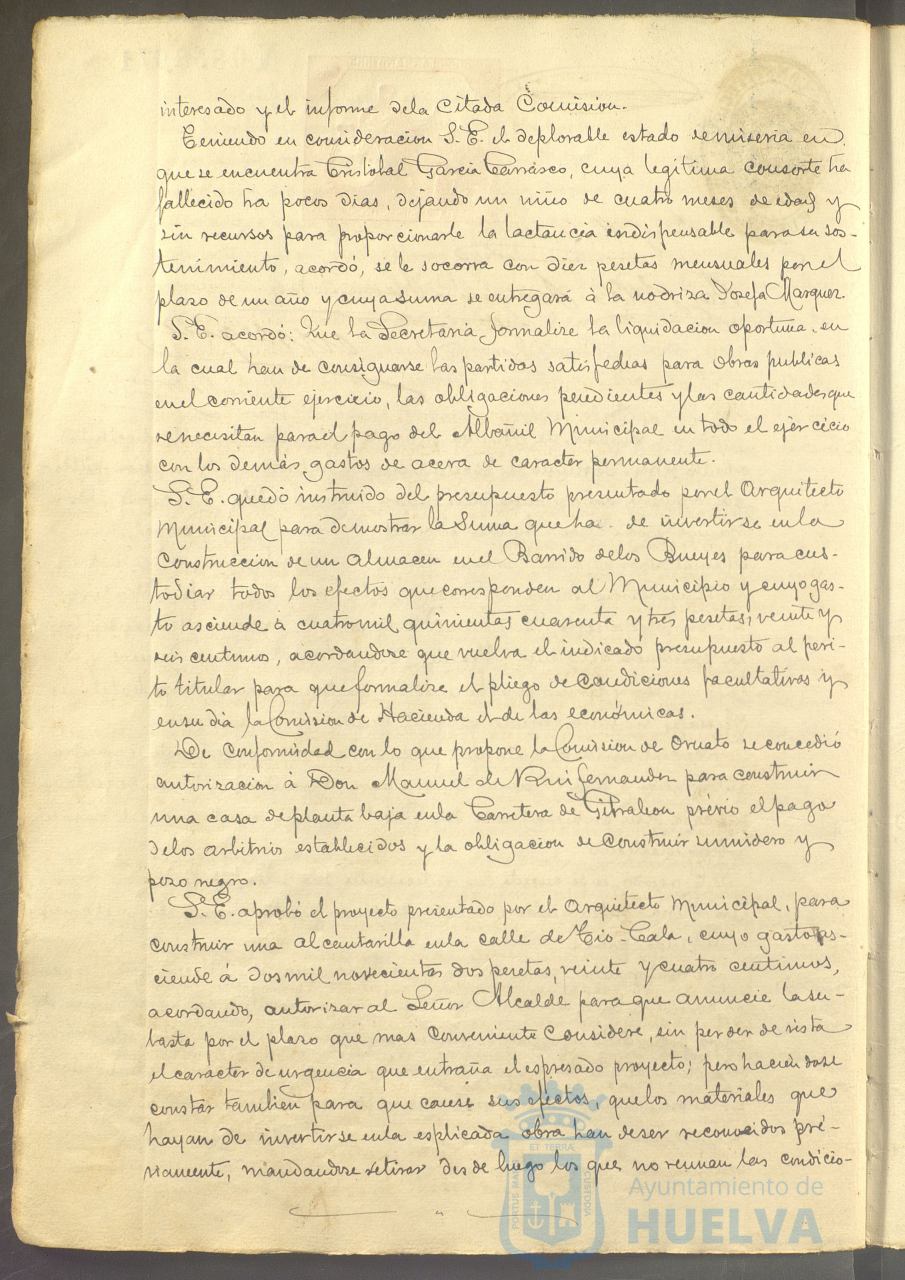 interesado y el informe dela Citada Comision.
Teniendo en consideracion S. E. el deplorable estado de miseria en
que se encuentra Cristobal Garcia Carrasco, cuya legitima consorte ha
fallecido ha pocos dias, dejando un niño de cuatro meses de edad y
sin recursos para proporcionarle la lactancia indispensable para su sos-
tenimiento, acordó, se le socorra con diez pesetas mensuales por el
plazo de un año y cuya suma se entregará á la nodriza Josefa Marquez.
S. E. acordó: Que la Secretaria formalize la liquidacion oportuna, en
la cual han de consignarse las partidas satisfechas para obras publicas
en el corriente ejercicio, las obligaciones pendientes y las cantidades que
se necesitan para el pago del Albañil Municipal en todo el ejercicio
con los demás gastos de acera de caracter permanente.
S. E. quedó instruido del presupuesto presentado por el Arquitecto
Municipal para demostrar la suma que ha de invertirse en la
construccion de un almacen en el Barrido de los Bueyes para cus-
todiar todos los efectos que corresponden al Municipio y cuyo gas-
to asciende á cuatro mil quinientas cuarenta y tres pesetas, veinte y
seis centimos, acordandose que vuelva el indicado presupuesto al peri-
to titular para que formalize el pliego de condiciones facultativas y
en su dia la Comision de Hacienda el de las económicas.
De conformidad con lo que propone la Comision de Ornato se concedió
autorizacion á Don Manuel de Rui fernandez para construir
una casa de planta baja en la Carretera de Gibraleon prévio el pago
delos arbitrios establecidos y la obligacion de construir sumidero y
pozo negro.
S. E. aprobó el proyecto presentado por el Arquitecto Municipal, para
construir una alcantarilla en la calle de Tio-Cala, cuyo gasto as-
ciende á dos mil novecientas dos pesetas, veinte y cuatro centimos,
acordando, autorizar al Señor Alcalde para que anuncie la su-
basta por el plazo que mas conveniente considere, sin perder de vista
el caracter de urgencia que entraña el espresado proyecto; pero haciendose
constar tambien para que cause sus efectos, que los materiales que
hayan de invertirse en la esplicada obra han de ser reconocidos pré-
viamente, mandandose retirar desde luego los que no reunan las condicio-
ET TERRA
PORTUS MARIS
CUSTODIA
Ayuntamiento de
HUELVA